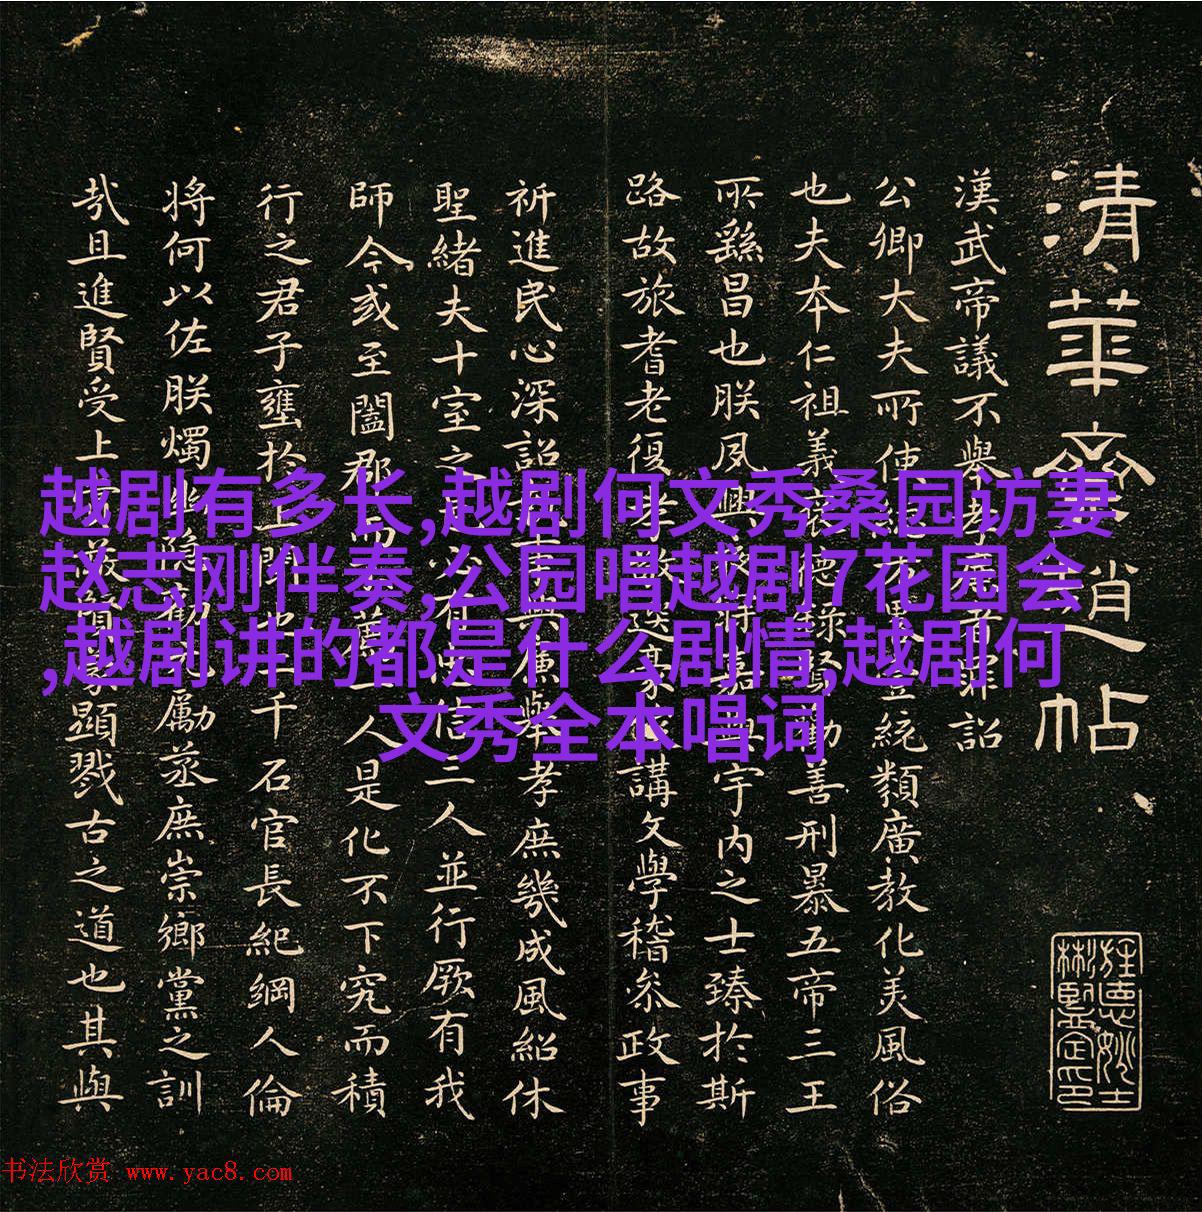 清華齋趙帖
漢武帝議不舉孝廉者罪詔
公卿大夫所使總方略壹統類廣教化美風俗
也夫本仁祖義褒德祿賢勸善刑暴五帝三王
所繇昌也朕夙興夜寐嘉與宇内之士臻於斯
路故旅耆老復孝敬選豪俊講文學稽參政事
祈進民心深詔執事興廉舉孝庶幾成風紹休
聖緒夫十室之邑必有忠信三人並行厥有我
師今或至闔郡而不薦一人是化不下究而積
行之君子壅於上聞也二千石官長紀綱人倫
將何以佐朕燭幽隱勸元元勵烝庶崇鄉黨之訓
哉且進賢受上賞蔽賢蒙顯戮古之道也其與
越剧有多长,越剧何文秀桑园访妻
赵志刚伴奏,公园唱越剧7花园会
,越剧讲的都是什么剧情,越剧何
文秀全本唱词
书法欣赏 www.yac8.com